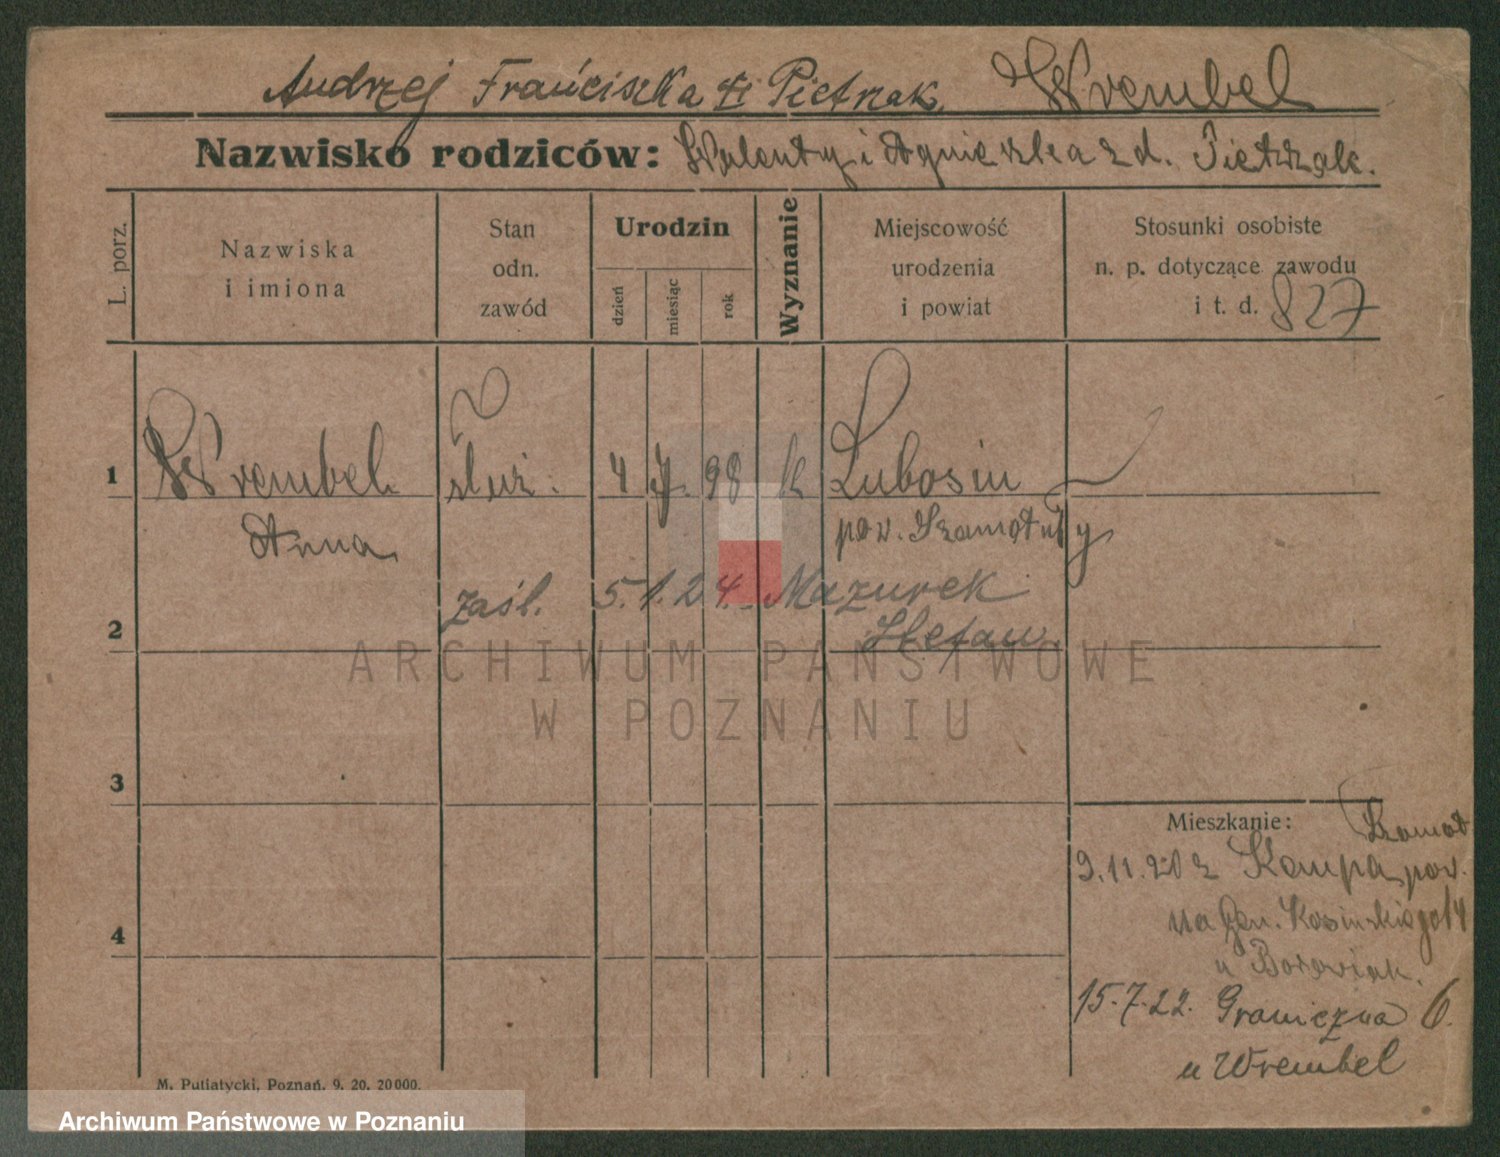 Andrzej Franciszka Pietrzak Wrembel
Nazwisko rodziców: Walenty i Agnieszka z d. Pietrzak.
L. porz.
Nazwiska
i imiona
Stan
odn.
zawód
Urodzin
dzień
miesiąc
rok
Wyznanie
Miejscowość
urodzenia
i powiat
Stosunki osobiste
n. p. dotyczące zawodu
i t. d. 827
1 Wrembel służ. 4 7. 98 k Lubosin
Anna pow. Szamotuły
zaśl. 5.1.24. Mazurek
2 Stefan
3
Mieszkanie: Szamot
9.11.20 z Kempa pow.
4 na Gen. Kosińskiego 14
u Borowiak.
15.7.22. Graniczna 6.
u Wrembel
M. Putiatycki, Poznań. 9. 20. 20000.
ARCHIWUM PAŃSTWOWE
W POZNANIU
Archiwum Państwowe w Poznaniu